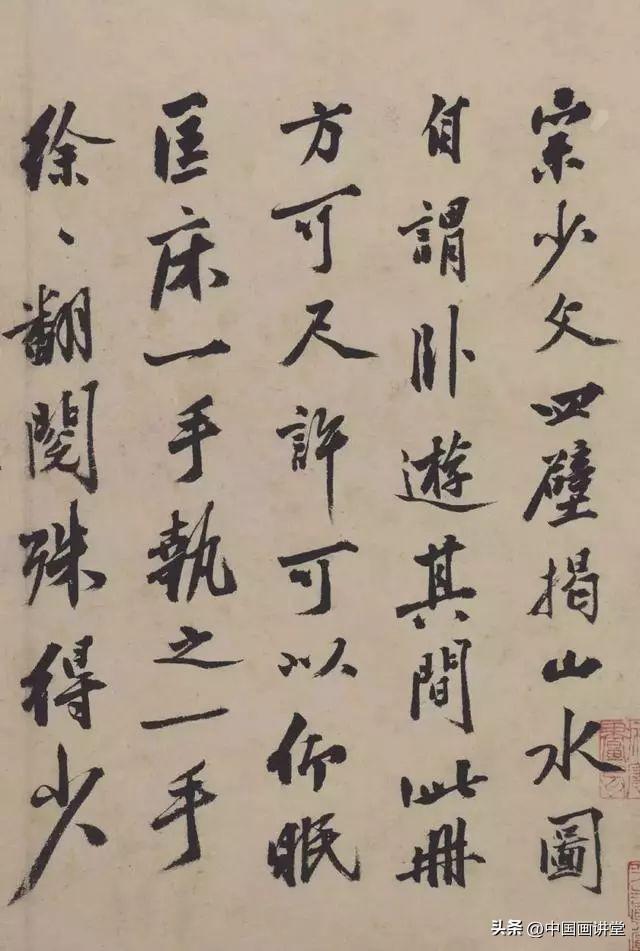 宗少文四壁揭山水圖
自謂卧遊其間此册
方可尺許可以仰眠
匡床一手執之一手
徐〻翻閱殊得少
头条 @中国画讲堂